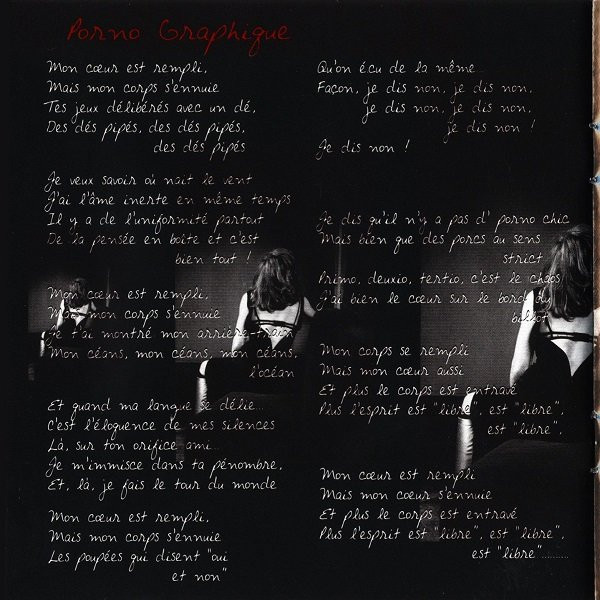 Porno Graphique
Mon cœur est rempli,
Mais mon corps s'ennuie
Tes jeux délibérés avec un dé,
Des dés pipés, des dés pipés,
des dés pipés
Je veux savoir où naît le vent
J'ai l'âme inerte en même temps
Il y a de l'uniformité partout
De la pensée en boîte et c'est
bien tout !
Mon cœur est rempli,
Mais mon corps s'ennuie
Je t'ai montré mon arrière-train
Mon céans, mon céans, mon céans,
l'océan
Et quand ma langue se délie...
C'est l'éloquence de mes silences
Là, sur ton orifice ami...
Je m'immisce dans ta pénombre,
Et, là, je fais le tour du monde
Mon cœur est rempli,
Mais mon corps s'ennuie
Les poupées qui disent "oui
et non"
Qu'on écu de la même...
Façon, je dis non, je dis non,
je dis non, je dis non,
je dis non !
Je dis non !
Je dis qu'il n'y a pas d' porno chic
Mais bien que des porcs au sens
strict
Primo, deuxio, tertio, c'est le chaos
J'ai bien le cœur sur le bord du
billot
Mon corps se rempli
Mais mon cœur aussi
Et plus le corps est entravé
Plus l'esprit est "libre", est "libre",
est "libre",
Mon cœur est rempli
Mais mon cœur s'ennuie
Et plus le corps est entravé
Plus l'esprit est "libre", est "libre",
est "libre"..........